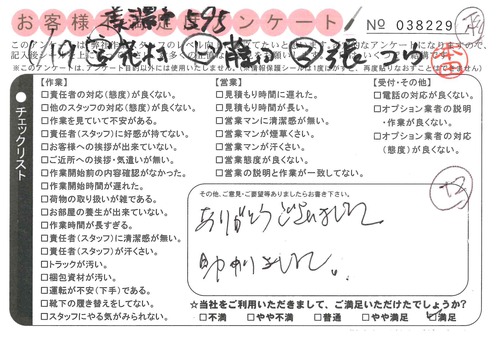 お客様満足度アンケート
№ 038229
※このアンケートは、アンケート目的以外には使用いたしません。
チェックリスト
【作業】
□責任者の対応(態度)が良くない。
□他のスタッフの対応(態度)が良くない。
□作業を見ていて不安がある。
□責任者(スタッフ)に好感が持てない。
□お客様への挨拶が出来ていない。
□ご近所への挨拶・気遣いが無い。
□作業開始前の内容確認がなかった。
□作業開始時間が遅れた。
□荷物の取り扱いが雑である。
□お部屋の養生が出来ていない。
□作業時間が長すぎる。
□責任者(スタッフ)に清潔感が無い。
□責任者(スタッフ)が汗くさい。
□トラックが汚い。
□梱包資材が汚い。
□運転が不安(下手)である。
□靴下の履き替えをしてない。
□スタッフにやる気がみられない。
【営業】
□見積もり時間に遅れた。
□見積もり時間が長い。
□営業マンに清潔感が無い。
□営業マンが煙草くさい。
□営業マンが汗くさい。
□営業態度が良くない。
□営業の説明と作業が一致してない。
【受付・その他】
□電話の対応が良くない。
□オプション業者の説明
・作業が良くない。
□オプション業者の対応
(態度)が良くない。
その他、ご意見・ご要望等ありましたらお書き下さい。
ありがとうございました
助かりました。
☆当社をご利用いただきまして、ご満足いただけたでしょうか?
□不満 □やや不満 □普通 □やや満足 ☑満足